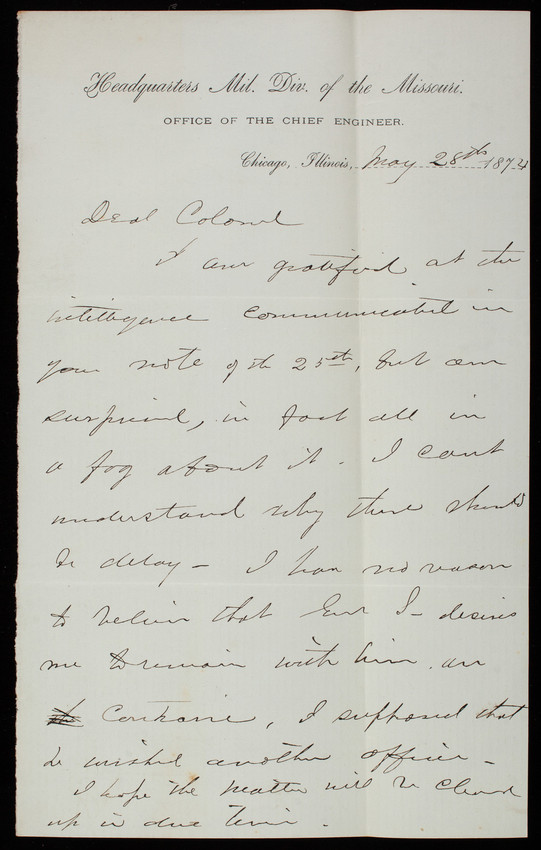 Headquarters Mil. Div. of the Missouri.
OFFICE OF THE CHIEF ENGINEER.
Chicago, Illinois, May 28th 1874
Dear Colonel
I am gratified at the
intelligence communicated in
your note of the 25th, but am
surprised, in fact all in
a fog about it. I can't
understand why there should
be delay - I have no reason
to believe that Genl S- desires
me to remain with him. on
the contrary, I supposed that
he wished another officer -
I hope the matter will be cleared
up in due time.